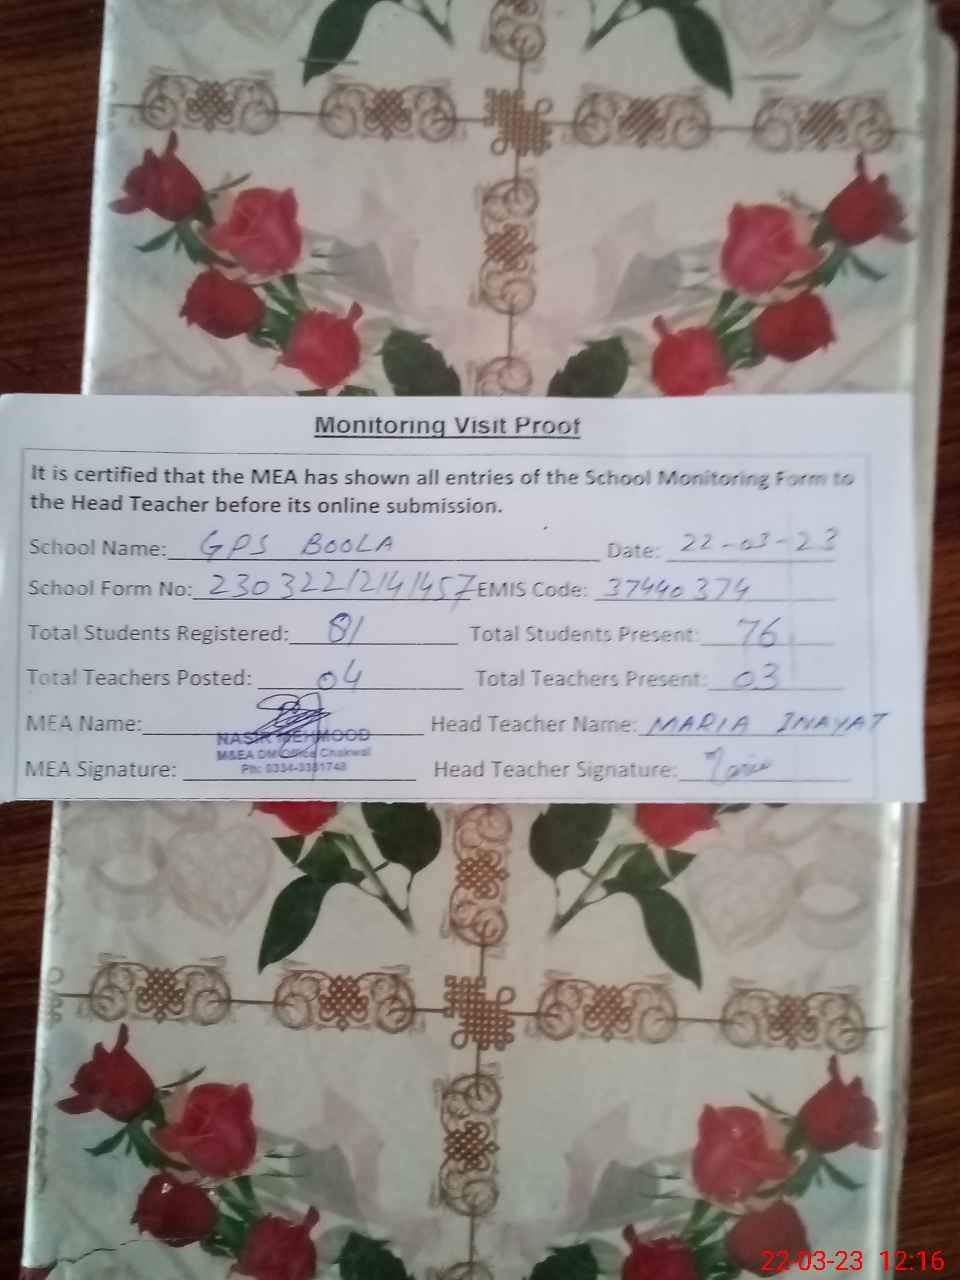 Monitoring Visit Proof
It is certified that the MEA has shown all entries of the School Monitoring Form to
the Head Teacher before its online submission.
School Name: GPS BOOLA Date: 22-03-23
School Form No: 23032212141457 EMIS Code: 37440374
Total Students Registered: 81 Total Students Present: 76
Total Teachers Posted: 04 Total Teachers Present: 03
MEA Name: Head Teacher Name: MARIA INAYAT
NASIR MEHMOOD
M&EA DMO Office Chakwal
MEA Signature: Head Teacher Signature: Maria
22-03-23 12:16